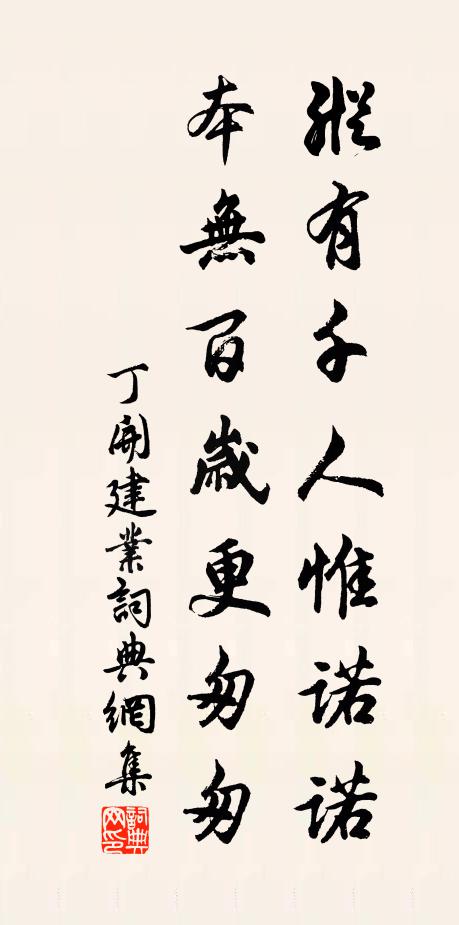 縱有千人惟諾諾
本無百歲更匆匆
丁開建業詞典網集
詞典網印